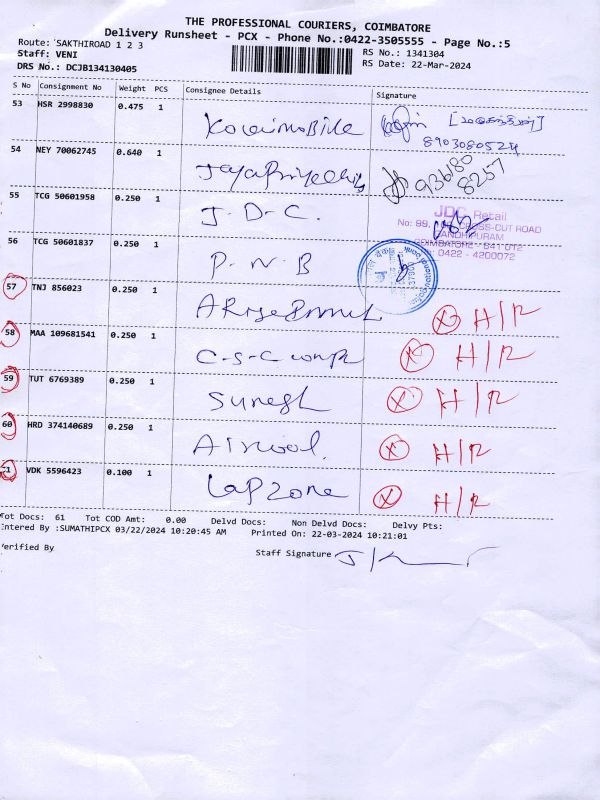 THE PROFESSIONAL COURIERS, COIMBATORE
Delivery Runsheet - PCX - Phone No.:0422-3505555 - Page No.:5
Route: SAKTHIROAD 1 2 3 RS No.: 1341304
Staff: VENI RS Date: 22-Mar-2024
DRS No.: DCJB134130405
S No Consignment No Weight PCS Consignee Details Signature
53 HSR 2998830 0.475 1 Kovai mobile
8903080524
54 NEY 70062745 0.640 1
936180
8257
55 TCG 50601958 0.250 1 J.D.C.
JDC Retail
No: 99, CROSS-CUT ROAD
GANDHIPURAM
COIMBATORE - 641 012
0422 - 4200072
56 TCG 50601837 0.250 1 P.N.B
57 TNJ 856023 0.250 1 X H/R
58 MAA 109681541 0.250 1 C-S-C X H/R
59 TUT 6769389 0.250 1 Suresh X H/R
60 HRD 374140689 0.250 1 X H/R
61 VDK 5596423 0.100 1 Lap Zone X H/R
Tot Docs: 61 Tot COD Amt: 0.00 Delvd Docs: Non Delvd Docs: Delvy Pts:
Entered By :SUMATHIPCX 03/22/2024 10:20:45 AM Printed On: 22-03-2024 10:21:01
Verified By Staff Signature